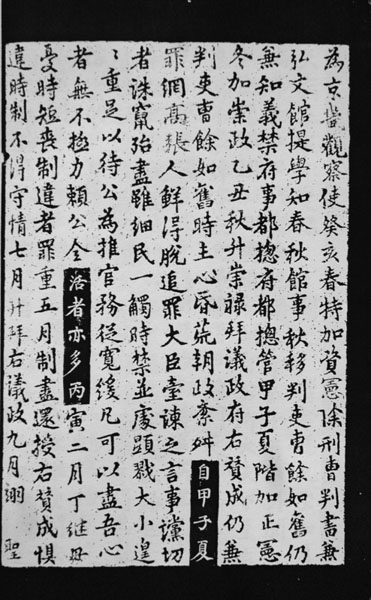 為京畿觀察使癸亥春特加資憲除刑曹判書兼
弘文館提學知春秋館事秋移判吏曹餘如舊仍
兼知義禁府事都摠府都摠管甲子夏階加正憲
冬加崇政乙丑秋升崇祿拜議政府右贊成仍兼
判吏曹餘如舊時主心昏荒朝政紊舛自甲子夏
罪網高張人鮮得脫追罪大臣臺諫之言事讜切
者誅竄殆盡雖細民一觸時禁並處顯戮大小遑
〻重足以待公為推官務從寬緩凡可以盡吾心
者無不極力賴公全活者亦多丙寅二月丁繼母
憂時短喪制違者罪重五月制盡還授右贊成惧
違時制不得守情七月升拜右議政九月翊聖